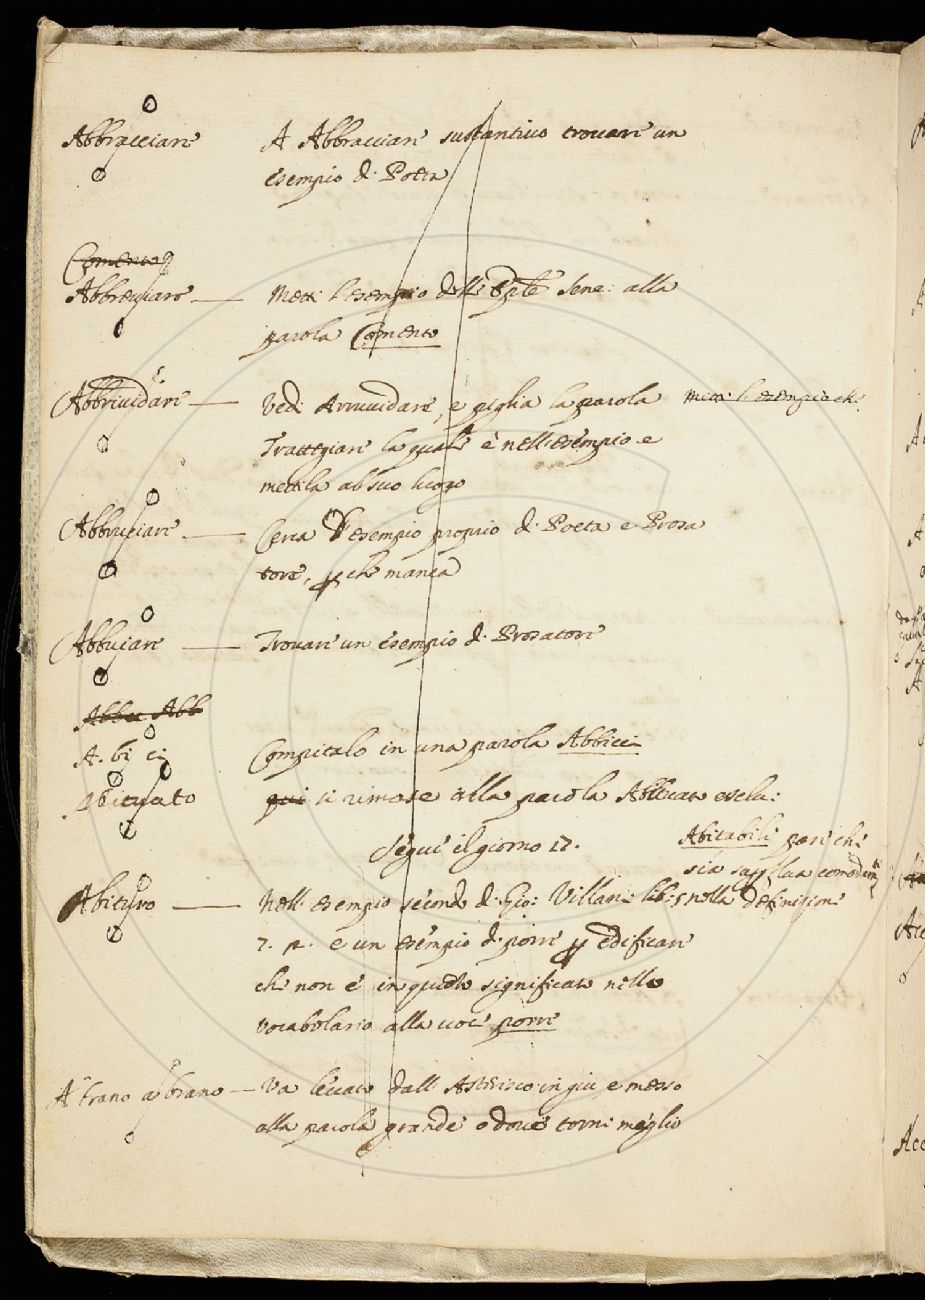 Abbracciare A Abbracciare sustantivo trovare un
esempio di Poeta
Comento
Abbreviare — Metti l'esempio delle Epte Sene: alla
parola Comento
Abbrividare — Vedi Arrividare, e piglia la parola metti l'esempio che
Tratteggiare la quale è nell'esempio e
mettila al suo luogo
Abbruciare — Cerca l'esempio proprio di Poeta e Prosa
tore, p che manca
Abbuiare — Trovare un esempio di Prosatore
Abbec Abb
A. bi ci Compitalo in una parola Abbicci
Abituato qui si rimase alla parola Abbicare esclu:
Seguì il giorno 17.
Abitabile pare che
sia
Abituro — Nell'esempio secondo di Gio: Villani lib: 5 nella definizione
7. 2. e un esempio di porre p edificare
che non è in questo significato nello
vocabolario alla voce porre
A brano a brano — Va levato dall'Asterisco in giu, e messo
alla parola grande o dove torni meglio